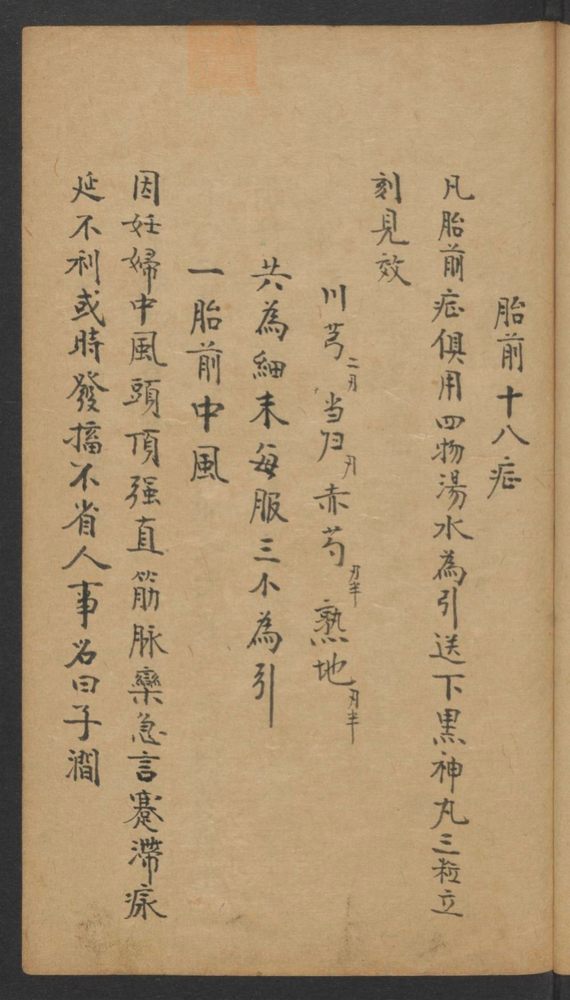 胎前十八症
凡胎前症俱用四物湯水為引送下黑神丸三粒立
刻見效
川芎二刄 当归刄 赤芍刄半 熟地刄半
共為細末每服三小為引
一胎前中風
因妊婦中風頭頂强直筋脉欒急言蹇滯痰
延不利或時發搐不省人事名曰子澗